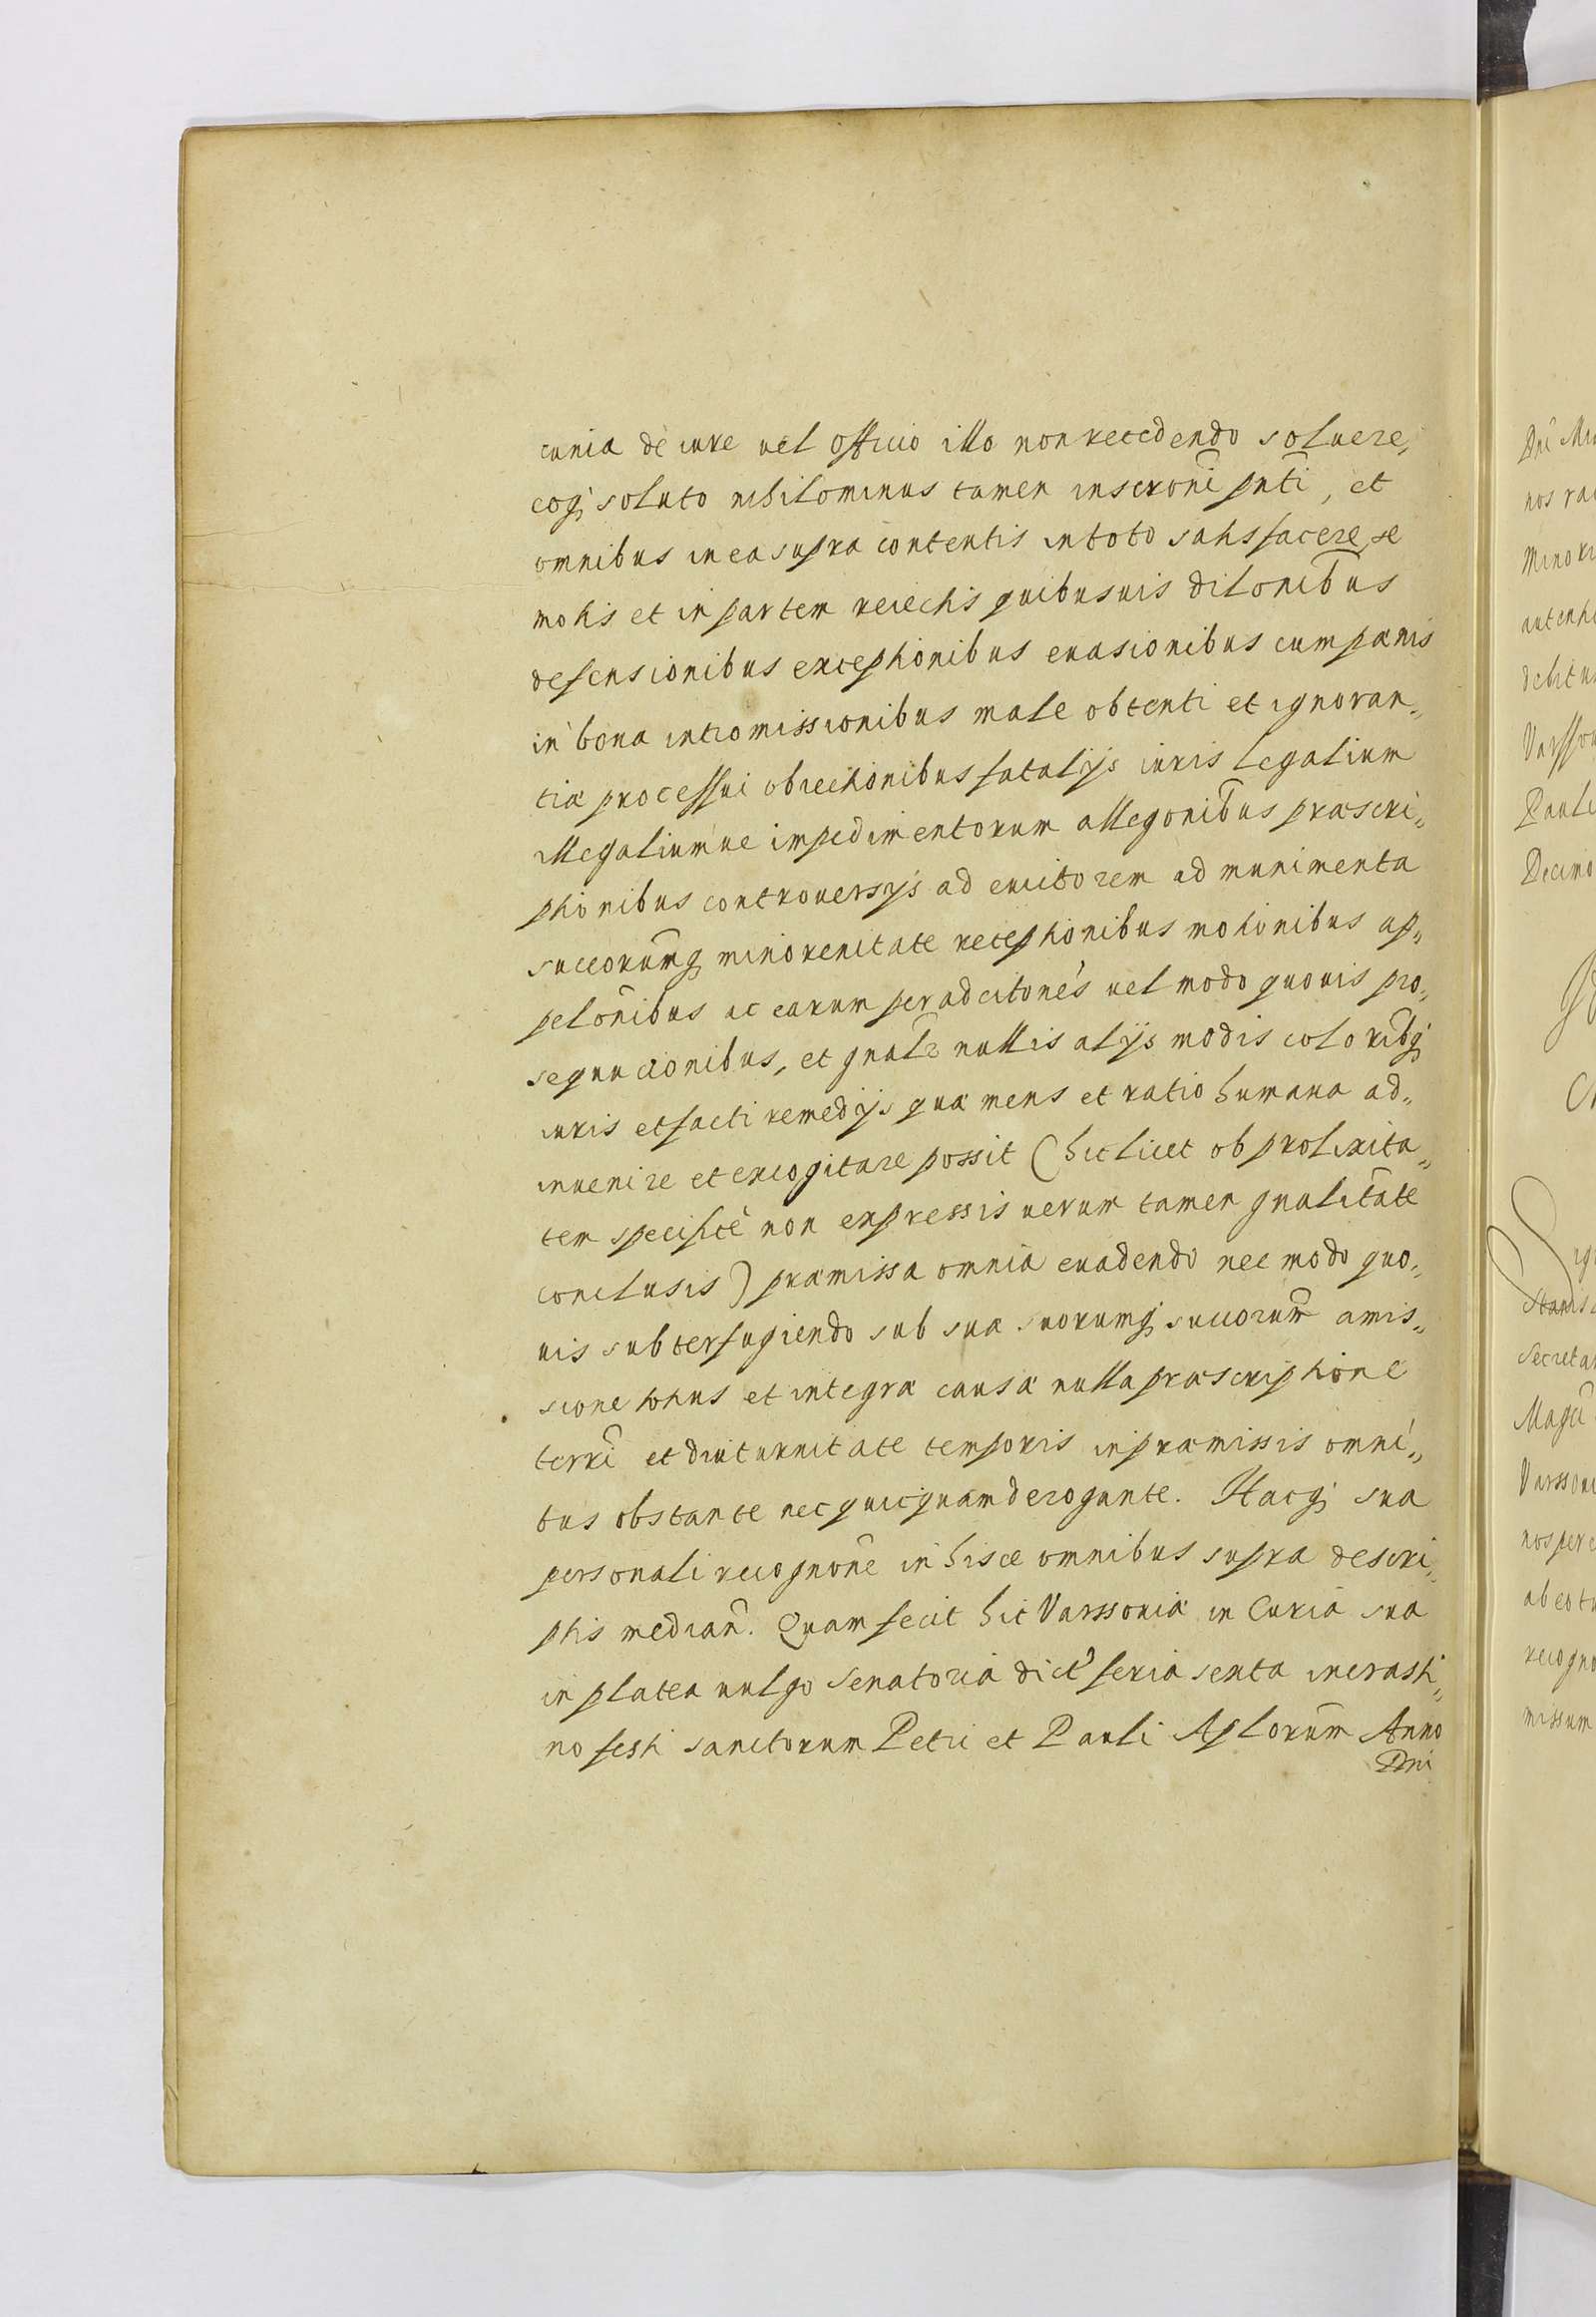 cunia de iure uel officio illo non recedendo soluere,
eoq; soluto nihilominus tamen inscrōni pn̄ti, et
omnibus in ea supra contentis in toto satisfacere, re
motis et in partem reiectis quibusuis dilōnibus
defensionibus exceptionibus euasionibus cum pænis
in bona intromissionibus male obtenti et ignoran„
tiæ processui obiectionibus fatalijs iuris legalium
illegaliumue impedimentorum allegōnibus præscri„
ptionibus controuersijs ad euitorem ad munimenta
succorum̄q; minorenitate receptionibus motionibus ap„
pelōnibus ac earum per adcitonēs uel modo quouis pro„
sequucionibus, et gn̄alr nullis alijs modis coloribq;
iuris et facti remedijs quæ mens et ratio humana ad„
inuenire et excogitare possit (hic licet ob prolixita„
tem specificè non expressis uerum tamen gn̄alitate
conclusis) præmissa omnia euadendo nec modo quo„
uis subterfugiendo sub sua suorumq; succorum̄ amis„
sione totius et integræ causæ nulla præscriptione
terri et diuturnitate temporis in præmissis omni„
tus obstante nec quicquam derogante. Hacq; sua
personali recognōne in hisce omnibus supra descri„
ptis median̄. Quam fecit hic Varssouiæ in Curia sua
in platea uulgo Senatoria dict' feria sexta in crasti„
no festi sanctorum Petri et Pauli Aplorum̄ Anno
Dni
Dnī
nos
debitu
Pauli
Decimo
Secreta
nos per
ab eo
recogno
missum